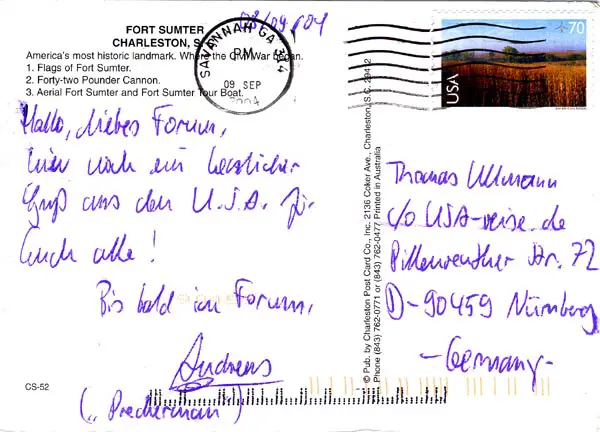 FORT SUMTER
CHARLESTON, S
America's most historic landmark. Where the Civil War began.
1. Flags of Fort Sumter.
2. Forty-two Pounder Cannon.
3. Aerial Fort Sumter and Fort Sumter Tour Boat.
08/09/04
SAVANNAH GA 314
PM
09 SEP
2004
70
USA
Hallo, liebes Forum,
hier noch ein herzlicher
Gruß aus den U.S.A. für
Euch alle!
Bis bald im Forum,
Andreas
("Prederman")
CS-52
© Pub. by Charleston Post Card Co., Inc. 2136 Coker Ave., Charleston, S.C. 29412
Phone (843) 762-0771 or (843) 762-0477 Printed in Australia
Thomas Ullmann
c/o USA-reise.de
Pillenreuther Str. 72
D-90459 Nürnberg
-Germany-